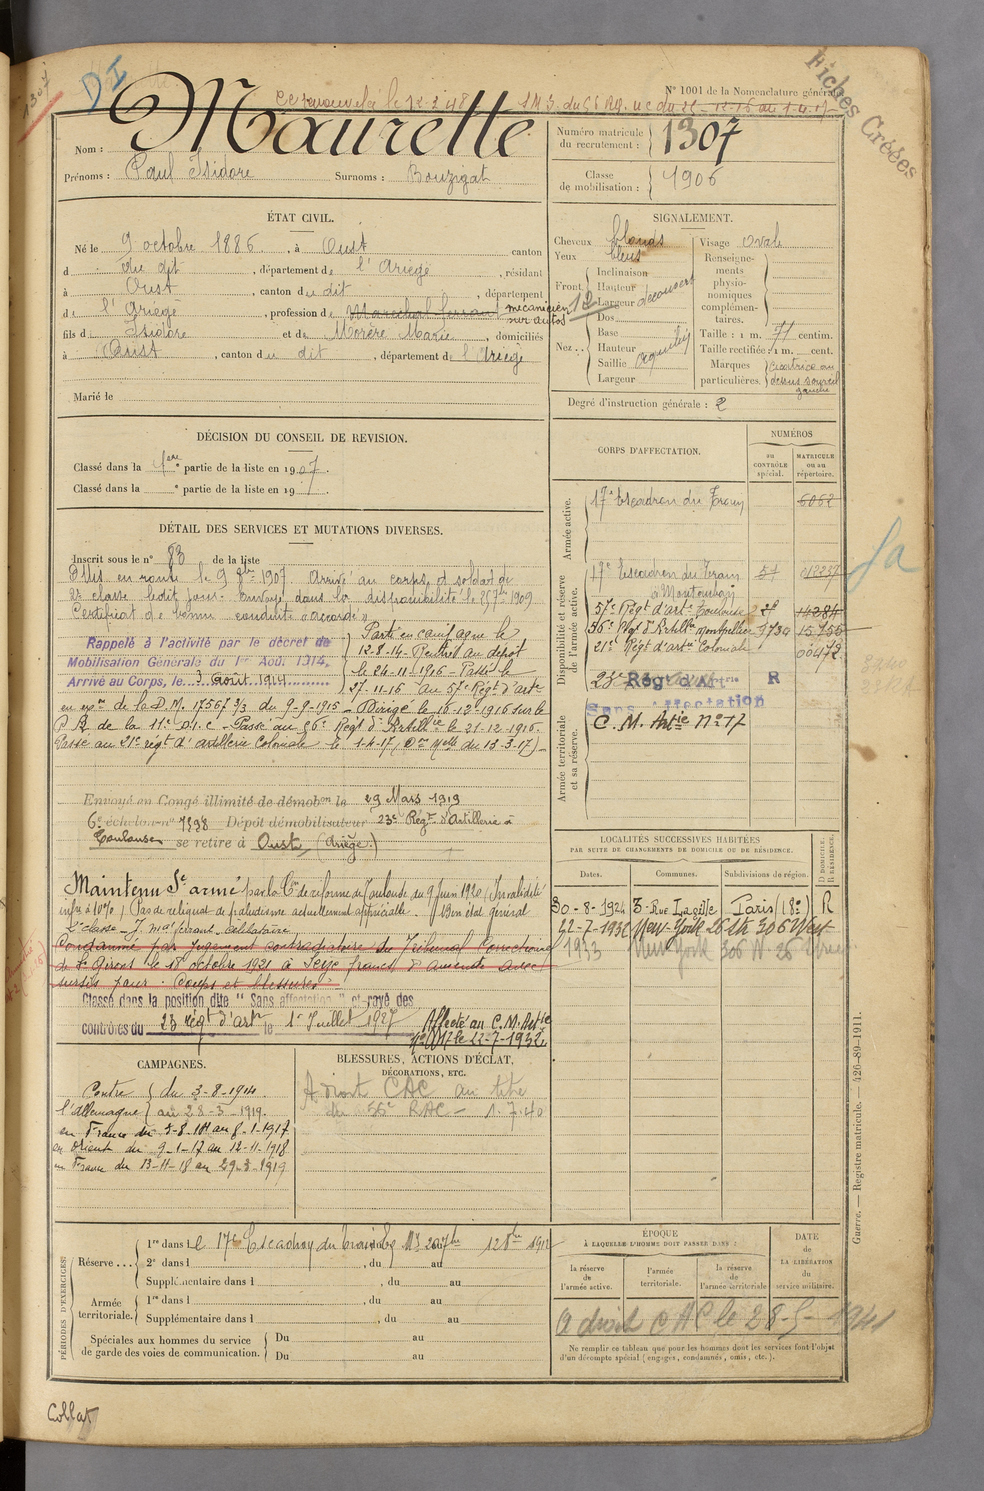 1307
DI
Fiches Créées
N° 1001 de la Nomenclature générale
Nom : Maurette
Prénoms : Paul Isidore Surnoms : Bouzigat
Numéro matricule du recrutement : 1307
Classe de mobilisation : 1906
ÉTAT CIVIL.
Né le 9 octobre 1886, à Oust canton
d du dit, département de l'Ariège, résidant
à Oust, canton du dit, département
de l'Ariège, profession de Marechal ferrant mecanicien sur autos
fils d Isidore et de Morère Marie, domiciliés
à Oust, canton du dit, département de l'Ariège
Marié le
SIGNALEMENT.
Cheveux blonds
Yeux bleus
Front Inclinaison
Hauteur
Largeur decouvert
Nez .. Dos
Base
Hauteur
Saillie
Largeur
Visage oval
Renseignements physionomiques complémentaires.
Taille : 1 m. 71 centim.
Taille rectifiée : 1 m. cent.
Marques particulières. cicatrice au dessus sourcil gauche
Degré d'instruction générale : 2
DÉCISION DU CONSEIL DE REVISION.
Classé dans la 1ere partie de la liste en 1907.
Classé dans la e partie de la liste en 19
DÉTAIL DES SERVICES ET MUTATIONS DIVERSES.
Inscrit sous le n° 83 de la liste
Mis en route le 9 8bre 1907. Arrivé au corps et soldat de
2e classe ledit jour. Envoyé dans la disponibilité le 25 7bre 1909
Certificat de bonne conduite "accordé"
Rappelé à l'activité par le décret de
Mobilisation Générale du 1er Août 1914.
Arrivé au Corps, le 3 août 1914
Parti en campagne le
12.8.14. Rentré au dépôt
le 24-11-1916 - Passé le
27-11-16 au 57e Régt d'artie
en xon de la D.M. 17567 3/3 du 9-9-1915 - Dirigé le 16-12-1916 sur le
P.R. de la 11e D.I.C - Passé au 56e Régt d'Artillie le 21-12-1916.
Passé au 21e régt d'artillerie Coloniale le 1-4-17
Envoyé en Congé illimité de démobon le 29 Mars 1919
6e échelon n° 7398 Dépôt démobilisateur 23e Régt d'Artillerie à
Toulouse se retire à Oust, (Ariège)
Maintenu St armé par la Con de réforme de Toulouse du 9 Juin 1920 (Invalidité
infre à 10% ) Pas de reliquat de paludisme actuellement appréciable. Bon état général
2e classe - Celibataire
Condamné par Jugement contradictoire du Tribunal Correctionnel
de St Girons le 18 octobre 1921 à Seize francs d'amende avec
sursis pour : Coups et blessures
Classé dans la position dite "Sans affectation" et rayé des
contrôles du 23 régt d'artie le 1er Juillet 1927
Affecté au C.M. Artie
n° 17 le 22-7-1932
CORPS D'AFFECTATION.
NUMÉROS
au CONTRÔLE spécial.
MATRICULE ou au répertoire.
Armée active.
17e Escadron du Train 6052
Disponibilité et réserve de l'armée active.
17e Escadron du Train 57
à Montauban
57e Régt d'artie Toulouse
56e Régt d'Artillie Montpellier 15.755
21e Régt d'artie Coloniale 00472
23e Régt d'Artie R
Sans affectation
Armée territoriale et sa réserve.
C. M. Artie N° 17
LOCALITÉS SUCCESSIVES HABITÉES
PAR SUITE DE CHANGEMENTS DE DOMICILE OU DE RÉSIDENCE.
Dates. Communes. Subdivisions de région. D DOMICILE. R RÉSIDENCE.
30-8-1924 3 Rue Lagille Paris (18e) R
22-7-1932 New-York 26 str 306 West
1933 New York 306 W. 26 Street
CAMPAGNES.
Contre l'Allemagne du 3-8-1914
au 28-3-1919.
en France du 3-8-14 au 8-1-1917
en Orient du 9-1-17 au 12-11-1918
en France du 13-11-18 au 29-3-1919
BLESSURES, ACTIONS D'ÉCLAT, DÉCORATIONS, ETC.
A droit CAC au titre
du 56e RAC - 1.7.40
PÉRIODES D'EXERCICES
Réserve ... 1re dans le 17e Escadron du train
2e dans l , du au
Supplémentaire dans l , du au
Armée territoriale. 1re dans l , du au
Supplémentaire dans l , du au
Spéciales aux hommes du service de garde des voies de communication. Du au
Du au
ÉPOQUE
À LAQUELLE L'HOMME DOIT PASSER DANS :
la réserve de l'armée active.
l'armée territoriale.
la réserve de l'armée territoriale
DATE de LA LIBÉRATION du service militaire.
a droit CAC le 28-5-1941
Ne remplir ce tableau que pour les hommes dont les services font l'objet
d'un décompte spécial (engagés, condamnés, omis, etc.).
Guerre. — Registre matricule. — 426-89-1911.
Collat